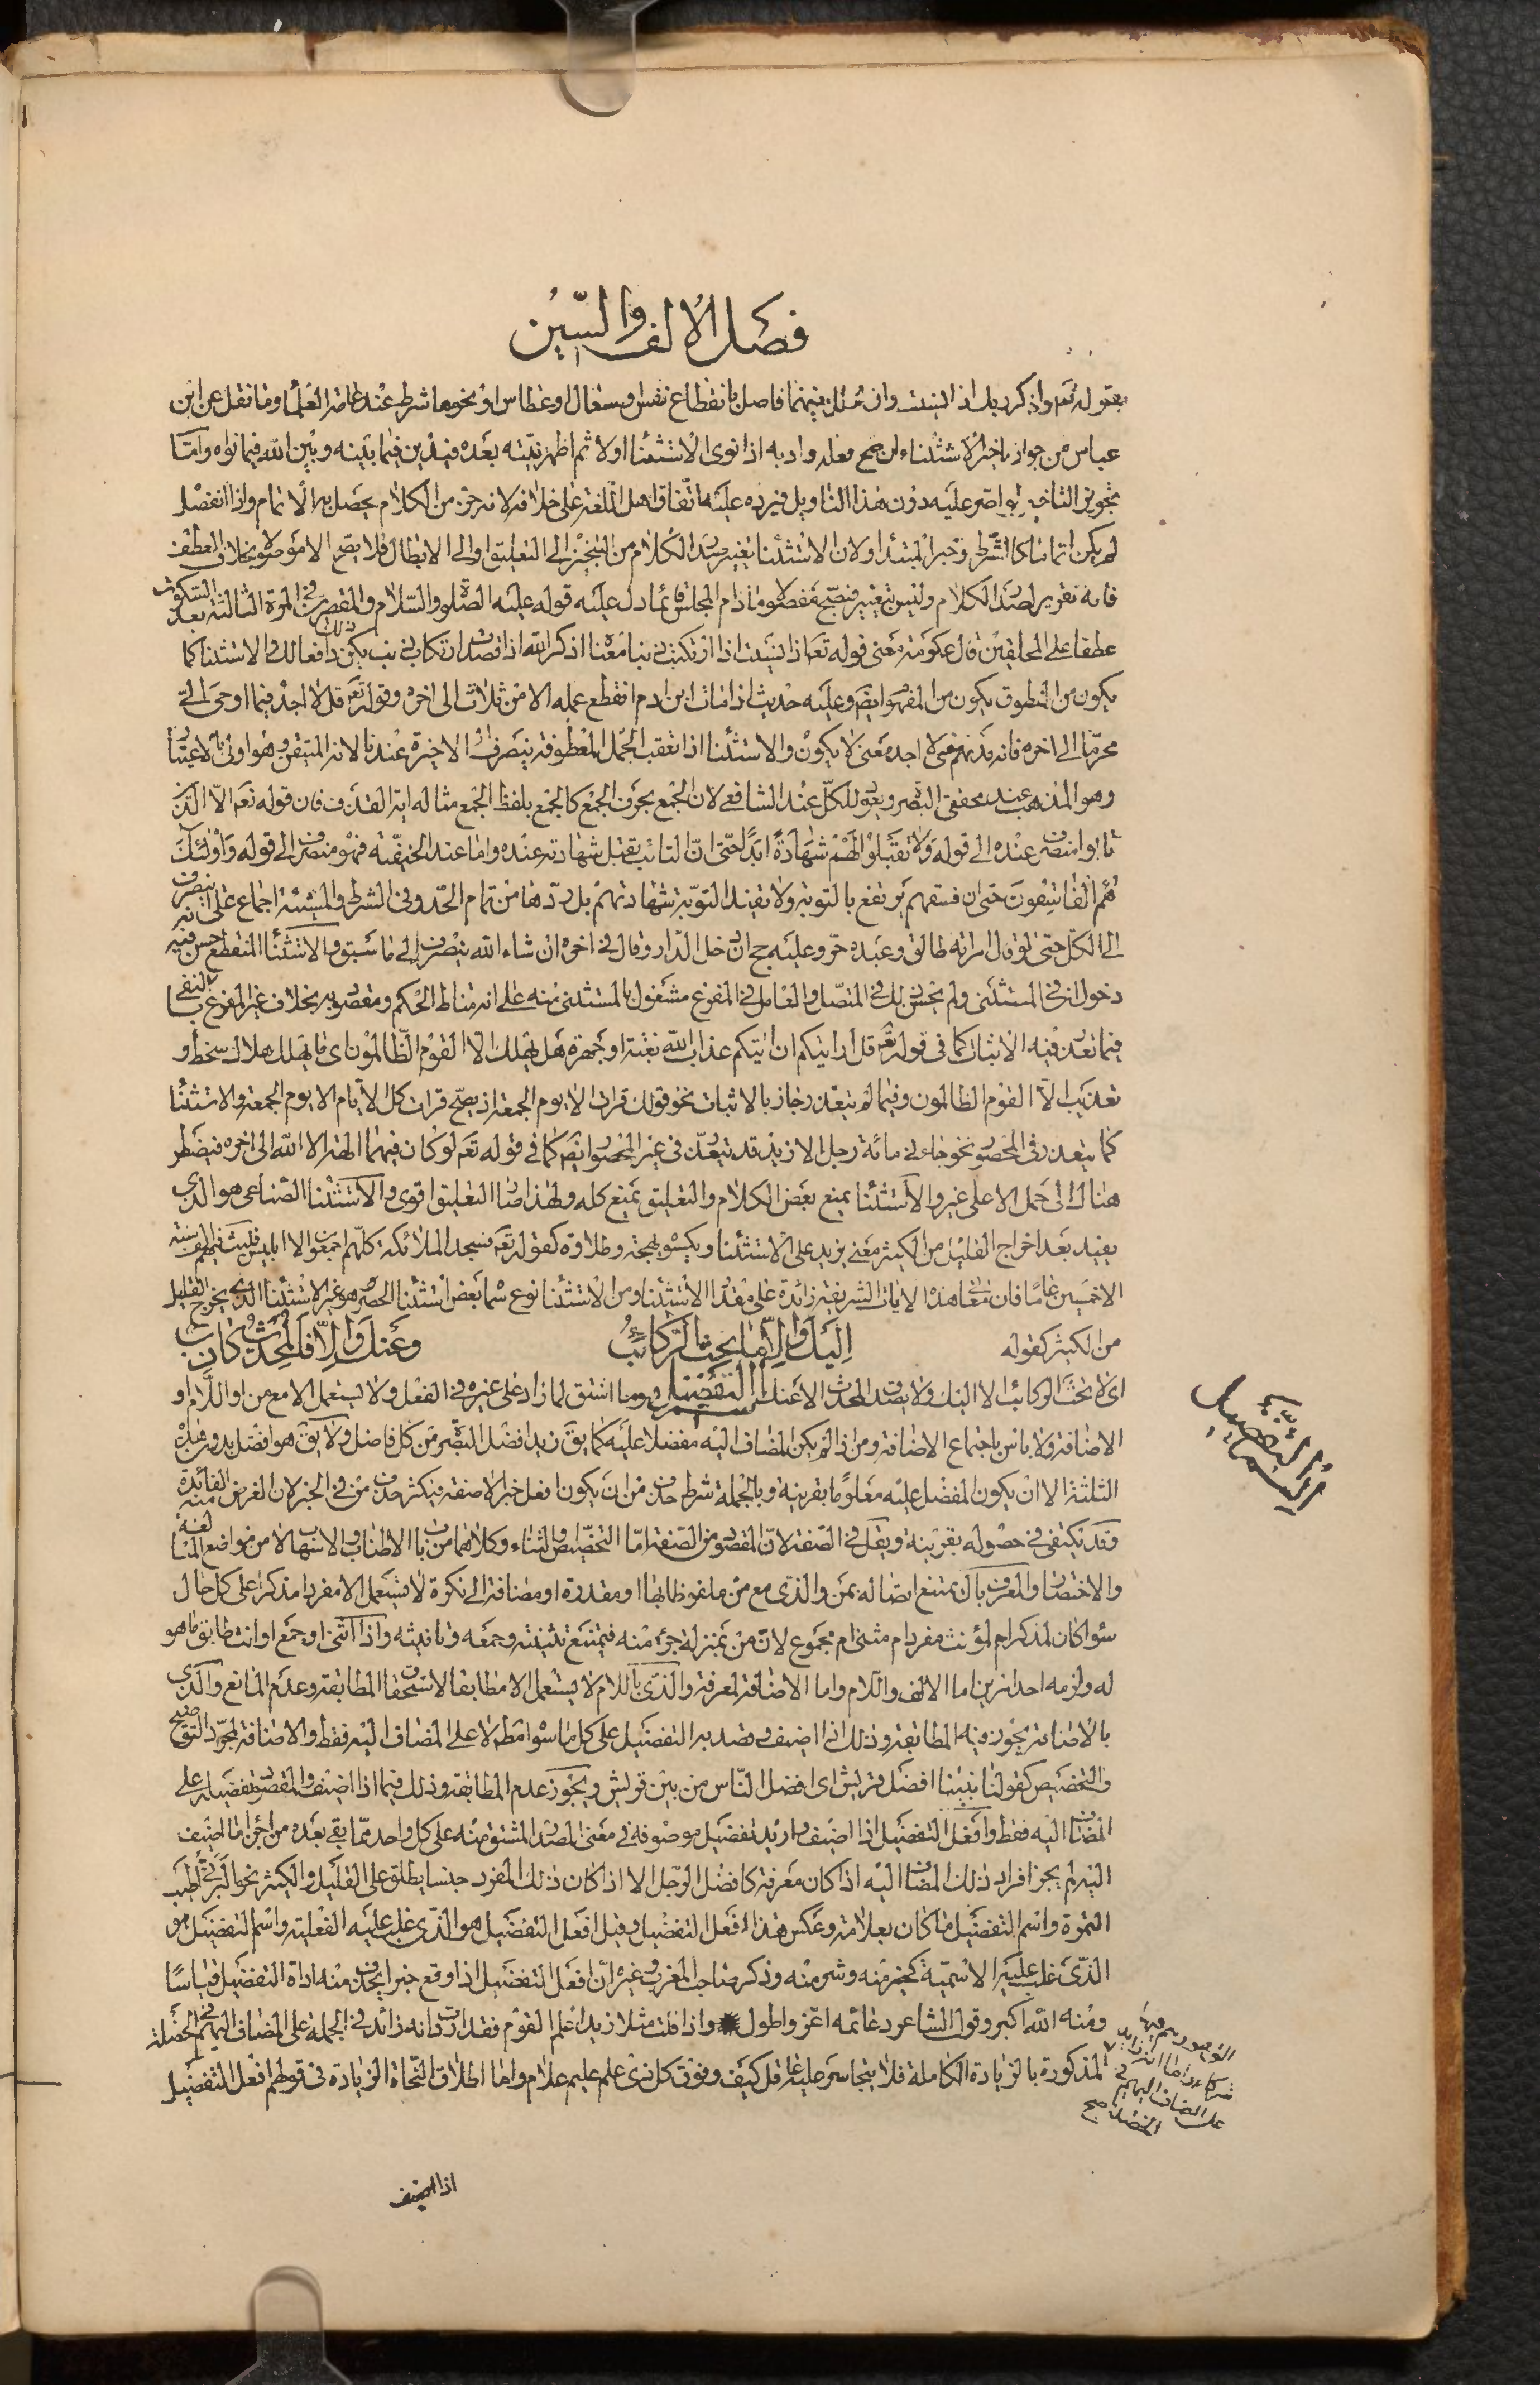 فصل الالف والسين
بقوله تعم واذكر ربك اذا نسيت وان تخلل بينهما فاصل بانقطاع نفس او سعال او عطاس او نحوها شرط عند عامة العلما وما نقل عن ابن
عباس من جواز تاخير الاستثناء ان صح فعله واد به اذا نوى الاستثنا اولا ثم اظهر نيته بعده فيدين فيما بينه وبين الله فيما نواه واما
تجويز التاخير لو اصر عليه دون هذا التاويل فيرده عليه اتفاق اهل اللغة على خلافه لانه جزء من الكلام يحصل به الاتمام واذا انفصل
لم يكن اتماما كالشرط وخبر المبتدا ولان الاستثنا تغيير صدر الكلام من التنجيز الى التعليق او الى الابطال فلا يصح الا موصولا بخلاف العطف
فانه تقرير لصدر الكلام وليس بتغيير فيصح مفصولا ما دام المجلس قائما دل عليه قوله عليه الصلوة والسلام والمقصرين في المرة الثالثة بعد السكوت
عطفا على المحلقين قال عكرمة معنى قوله تعا اذا نسيت اذا ارتكبت ذنبا معناه اذكر الله اذا قصدت ارتكاب ذنب يكن ذلك دافعا لك والاستثنا كما
يكون من المنطوق يكون من المفهوم ايضم وعليه حديث اذا مات ابن ادم انقطع عمله الا من ثلاث الى اخره وقوله تعم قل لا اجد فيما اوحى الي
محرما الى اخره فانه يفهم من لا اجد معنى لا يكون والاستثنا اذا تعقب الجمل المعطوفة ينصرف الى الاخيرة عندنا لانه المتيقن وهو اولى بالاعتبار
وهو المذهب عند محققي البصرة ويعود للكل عند الشافعي لان الجمع بحرف الجمع كالجمع بلفظ الجمع مثاله اية القذف فان قوله تعم الا الذين
تابوا منصرف عنده الى قوله ولا تقبلوا لهم شهادة ابدا حتى ان التائب يقبل شهادته عنده واما عند الحنفية فهو منصرف الى قوله واولئك
هم الفاسقون حتى ان فسقهم يرتفع بالتوبة ولا يفيد التوبة شهادتهم بل ردها من تمام الحد وفي الشرط والمشيئة اجماع على انه ينصرف
الى الكل حتى لو قال امراته طالق وعبده حر وعليه حج ان دخل الدار وقال في اخره ان شاء الله ينصرف الى ما سبق والاستثنا المنقطع حسن فيه
دخول ان في المستثنى ولم يحسن ذلك في المتصل والعامل في المفرغ مشغول بالمستثنى منه على انه مناط الحكم ومقصود به بخلاف غير المفرغ بالنفي
فيما تعذر فيه الاثبات كما في قوله تعم قل ارايتكم ان اتيكم عذاب الله بغتة او جهرة هل يهلك الا القوم الظالمون اى ما يهلك هلاك سخط و
تعذيب الا القوم الظالمون وفيما لم يتعذر جاز بالاثبات نحو قولك قرات الا يوم الجمعة اذ يصح قرات كل الايام الا يوم الجمعة والاستثنا
كما يتعذر في المحصور نحو جاءني مائة رجل الا زيد قد يتعذر في غير المحصور ايضم كما في قوله تعم لو كان فيهما الهة الا الله الى اخره فيضطر
هناك الى حمل الا على غير والاستثنا يمنع بعض الكلام والتعليق يمنع كله ولهذا صار التعليق اقوى والاستثنا الصناعى هو الذى
يفيد بعد اخراج القليل من الكثير معنى يزيد على الاستثنا ويكسوه بهجة وطلاوة كقوله تعم فسجد الملائكة كلهم اجمعون الا ابليس فلبث فيهم الف سنة
الا خمسين عاما فان معانى هذه الايات الشريفة زائدة على مقدار الاستثنا ومن الاستثنا نوع سماه بعض استثنا الحصر وهو غير الاستثنا الذى يخرج القليل
من الكثير كقوله اليك والا ما يحث الركائب وعنك والا فالمحدث كاذب
اى لا تحث الركائب الا اليك ولا يصدق المحدث الا عنك اسم التفضيل هو ما اشتق لما زاد على غيره في الفعل ولا يستعمل الا مع من او اللام او
الاضافة ولا باس باجتماع الاضافة ومن اذا لم يكن المضاف اليه مفضلا عليه كما يق زيد افضل البصرة من كل فاضل ولا يق هو افضل بدون هذه
الثلثة الا ان يكون المفضل عليه معلوما بقرينة وبالجملة شرط حذف من ان يكون افعل خبرا لا صفة فيكثر حذف من في الخبر لان الغرض منه الفائدة
وقد يكتفى في حصوله بقرينة ويقل في الصفة لان المقصود من الصفة اما التخصيص او الثناء وكلاهما من باب الاطناب والاسهاب لا من مواضع المبالغة
والاختصار والمعرف بال يمتنع اتصاله بمن والذى مع من ملفوظا بها او مقدرة او مضافا الى نكرة لا يستعمل الا مفردا مذكرا على كل حال
سوا كان لمذكر ام لمؤنث مفرد ام مثنى ام مجموع لان من بمنزلة جزء منه فيمتنع تثنيته وجمعه وتانيثه واذا اثنى او جمع او انث طابق ما هو
له ولزمه احد امرين اما الالف واللام واما الاضافة لمعرفة والذى باللام لا يستعمل الا مطابقا لاستحقاق المطابقة وعدم المانع والذى
بالاضافة يجوز فيه المطابقة وذلك اذا اضيف وقصد به التفضيل على كل ما سواه مطلقا لا على المضاف اليه فقط والاضافة لمجرد التوضيح
والتخصيص كقولنا نبينا افضل قريش اى افضل الناس من بين قريش ويجوز عدم المطابقة وذلك فيما اذا اضيف والمقصود تفضيله على
المضاف اليه فقط وافعل التفضيل اذا اضيف واريد تفضيل موصوفه في معنى المصدر المشتق منه على كل واحد مما بقي بعده من اجزا ما اضيف
اليه لم يجز افراد ذلك المضاف اليه اذا كان معرفة كافضل الرجل الا اذا كان ذلك المفرد جنسا يطلق على القليل والكثير نحو البرنى اطيب
التمرة واسم التفضيل ما كان بعلامته وعكس هذا افعل التفضيل وقيل افعل التفضيل هو الذى غلب عليه الفعلية واسم التفضيل هو
الذى غلب عليه الاسمية كخير منه وشر منه وذكر صاحب المغرب وغيره ان افعل التفضيل اذا وقع خبرا يحذف منه اداة التفضيل قياسا
ومنه الله اكبر وقول الشاعر دعائمه اعز واطول واذا قلت مثلا زيد اعلم القوم فقد اردت انه زائد في الجملة على المضاف اليهم في الخصلة
المذكورة بالزيادة الكاملة فلا يتجاسر عليه عاقل كيف وفوق كل ذى علم عليم علام واما اطلاق النحاة الزيادة في قولهم افعل التفضيل
اسم التفضيل
على المضاف اليهم في
الخصلة صح
اذا اضيف